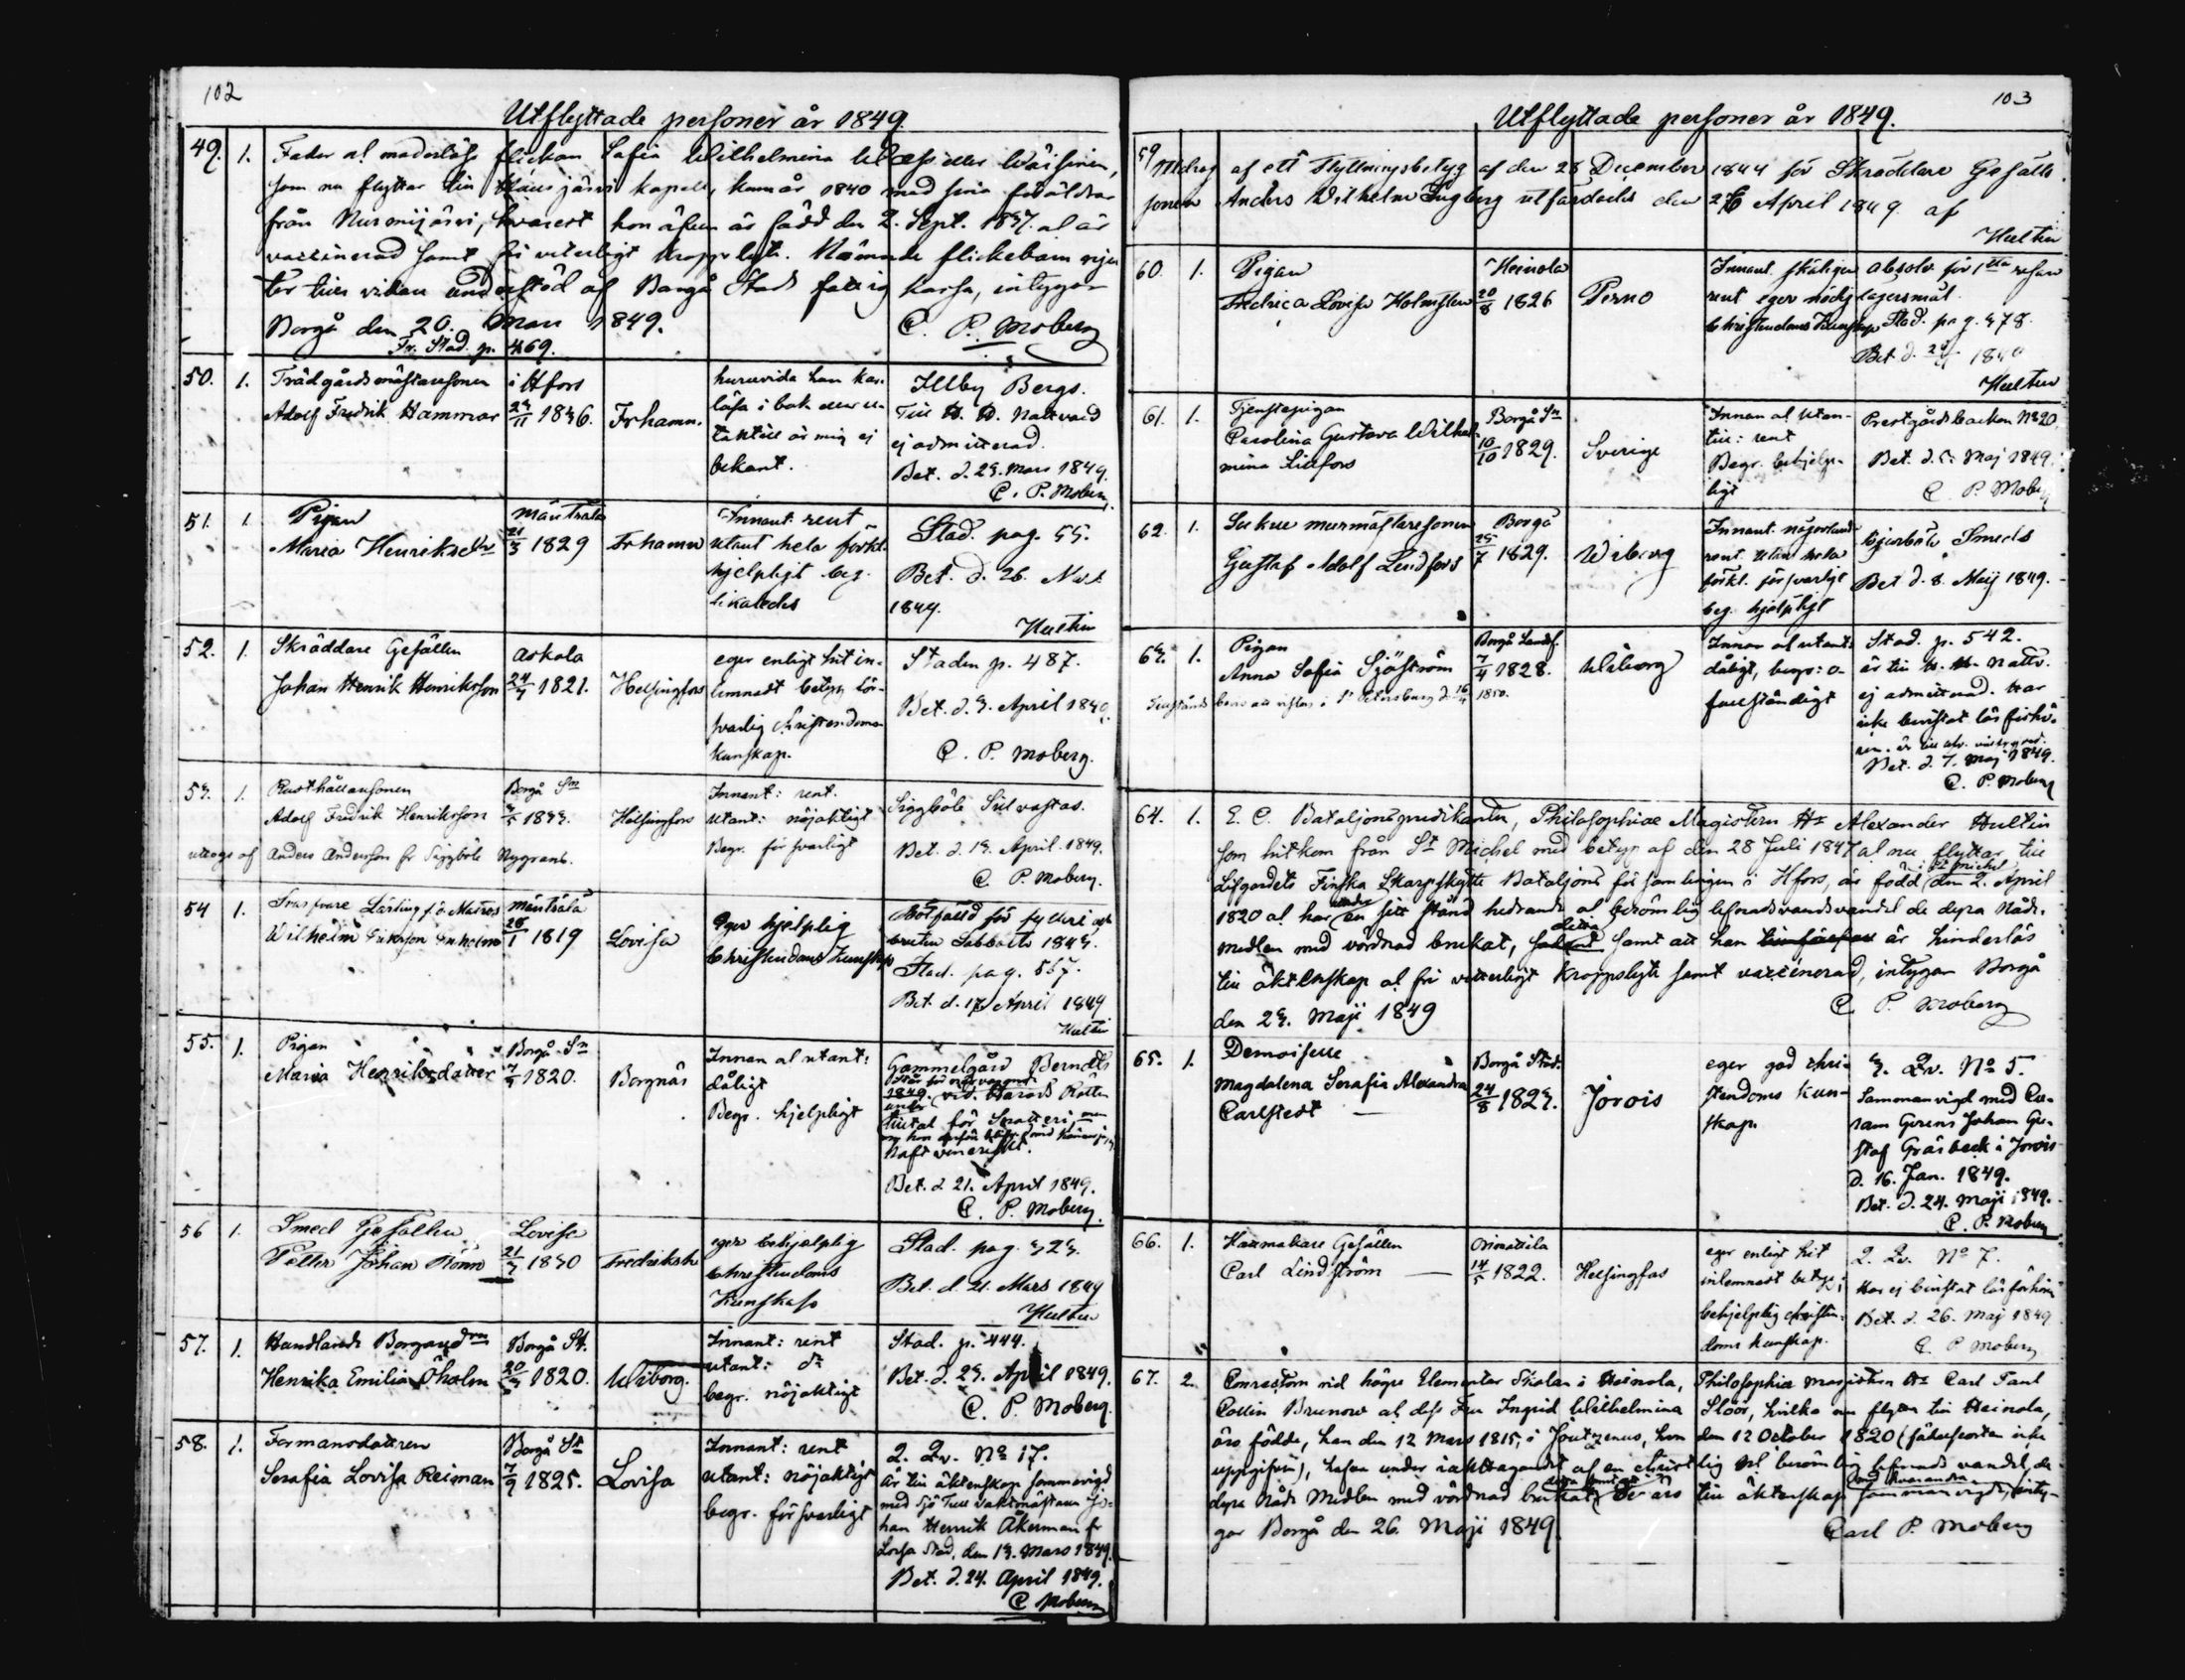 102
Utflyttade personer år 1849.
49. 1. Fader och moderlösa flickan Sofia Wilhelmina
som nu flyttar till kapell, kom år 1840 med sina föräldrar
från Nurmijärvi, hvarest hon äfven är född den 2. Sept. 1837. al är
vaccinerad samt fri veterligt kroppslyte. Nämnde flickebarn nju
ter till vidare understöd af Borgå Stads fattig kassa, intygar
Borgå den 20. Mars 1849. C. P. Moberg
Fr. Stad. p. 469.
50. 1. Trädgårdsmästaresonen
Adolf Fredrik Hammar
i Hfors
23/11 1836.
Frhamn.
huruvida han kan
läsa i bok eller u-
tantill är mig ej
bekant.
Illby Bergs.
Till H. H. Nattvard
ej admitterad.
Bet. d. 23. Mars 1849.
C. P. Moberg
51. 1 Pigan
Maria Henriksdr
Mäntsälä
21/3 1829
Frhamn
Innant: rent
utant hela förkl.
hjelpligt beg.
likaledes
Stad. pag. 55.
Bet. d. 26. Mars
1849.
Hultin
52. 1. Skräddare Gesällen
Johan Henrik Henriksson
Askola
24/4 1821.
Helsingfors
eger enligt hit in-
lemnadt betyg för-
svarlig christendoms
kunskap.
Staden p. 487.
Bet. d. 3. April 1849.
C. P. Moberg.
53. 1. Rusthållaresonen
Adolf Fredrik Henriksson
Borgå Sn
3/5 1833.
Helsingfors
Innant: rent.
utant: nöjaktigt
Begr. försvarligt
Siggböle Silvastas.
Bet. d. 13. April. 1849.
C. P. Moberg.
uttogs af Anders Andersson fr Siggböle Nygrans.
54 1. Lärling f.d. Matros
Wilhelm Eriksson
Mäntsälä
28/1 1819
Lovisa
Eger hjelplig
Christendoms kunskap
Botfälld för fylleri och
bruten Sabbath 1843.
Stad. pag. 567.
Bet. d. 17 April 1849
Hultin
55. 1. Pigan
Maria Henriksdotter
Borgå Sn
7/5 1820.
Borgnäs
Innan al utant:
dåligt
Begr. hjelpligt
Gammelgård Berndts
1849. vid Härads Rätten
tilltal för Snatteri
haft venerisk.
Bet. d 21. April 1849.
C. P. Moberg.
56 1. Smed Gesällen
Petter Johan Rönn
Lovisa
21/3 1830
Fredriksh
eger behjelplig
Christendoms
Kunskap
Stad. pag. 323.
Bet. d. 21. Mars 1849
Hultin
57. 1. Handlande Borgaredrn
Henrika Emilia Öholm
Borgå St.
20/3 1820.
Wiborg.
Innant: rent
utant: do
begr. nöjaktigt
Stad. p. 444.
Bet. d. 23. April 1849.
C. P. Moberg.
58. 1. Formansdottren
Serafia Lovisa Reiman
Borgå St
7/9 1825.
Lovisa
Innant: rent
utant: nöjaktigt
begr. försvarligt
2. Qv. No 17.
Är till äktenskap sammanvigd
med Sjö Tull vaktmästaren Jo-
han Henrik Åkerman fr
Lovisa Stad, den 13. Mars 1849.
Bet. d. 24. April 1849.
C Moberg
103
Utflyttade personer år 1849.
59 Utdrag af ett flyttningsbetyg af den 28 December 1844 för Skräddare Gesälls
sonen Anders Wilhelm utfärdades den 26 April 1849 af
Hultin
60. 1. Pigan
Fredrica Lovisa Holmsten
Heinola
20/8 1826
Perno
Innant skäligen
rent eger nödig
Christendoms Kunskap
absolv. för 1sta resan
lägersmål.
Stad. pag. 478.
Hultin
61. 1. Tjenstepigan
Carolina Gustava Wilhel-
mina Lidfors
Borgå Sn
10/10 1829.
Sverige
Innan al utan-
till: rent
Begr. behjelp-
ligt
Prestgårds backen No 20.
Bet. d. 5. Maj 1849.
C. P. Moberg
62. 1. murmästaresonen
Gustaf Adolf Lindfors
Borgå
25/7 1829.
Wiborg
Innant. någorlunda
rent. utan hela
förkl. försvarligt
beg. hjelpligt
Smeds
Bet d. 8. Maij 1849.
63. 1. Pigan
Anna Sofia Sjöström
Borgå Landsf.
7/4 1828.
Wiborg
Innan al utant:
dåligt, begr: o-
fullständigt
Stad. p. 542.
är till H. H. nattv.
ej admitterad. Har
icke bevistat läsförhö-
ren.
Bet. d. 7. Maj 1849.
C. P. Moberg
i St Petersburg d. 16/4 1850.
64. 1. E. C. Bataljonspredikanten, Philosophiae Magistern Hr Alexander Hultin
som hitkom från St Michel med betyg af den 28 Juli 1847 al nu flyttar till
Lifgardets Finska Skarpskytte Bataljons församlingen i Hfors, är född i St Michel den 2. April
1820 al har under en sitt stånd hedrande al berömlig lefnadsvandsvandel de dyra Nåde-
medlen med vördnad brukat, samt att han är hinderlös
till äktenskap al fri veterligt kroppslyte samt vaccinerad, intygar Borgå
den 23. Maji 1849 C. P. Moberg
65. 1. Demoiselle
Magdalena Serafia Alexandra
Carlstedt
Borgå Stad.
24/8 1823.
Jorois
eger god chri-
stendoms kun-
skap.
3. Qv. No 5.
Sammanvigd med Cu-
ram Gerens Johan Gu-
staf Gråsbeck i Jorois
d. 16. Jan. 1849.
Bet. d. 24. Maji 1849.
C. P. Moberg
66. 1. Hattmakare Gesällen
Carl Lindström
Orimattila
14/5 1822.
Helsingfors
eger enligt hit
inlemnadt betyg
behjelplig christen-
doms kunskap.
2. Qv. No 7.
Har ej bevistat läsförhör
Bet. d. 26. Maj 1849
C. P. Moberg
67. 2. Conrectorn vid högre Elementar Skolan i Heinola, Philosophiae Magistern Hr Carl Paul
Collin Brunow al dess Fru Ingrid Wilhelmina Sloör, hvilka nu flytta till Heinola,
äro födde, han den 12 Mars 1815, i Joutzenus, hon den 12 October 1820 (födelseorten icke
uppgifven), hafva under iakttagandet af en christlig och berömlig lefnads vandel, de
dyra Nåde Medlen med vördnad brukat, De äro till äktenskap med hvarandra sammanvigde, inty-
gar Borgå den 26. Maji 1849. Carl P. Moberg